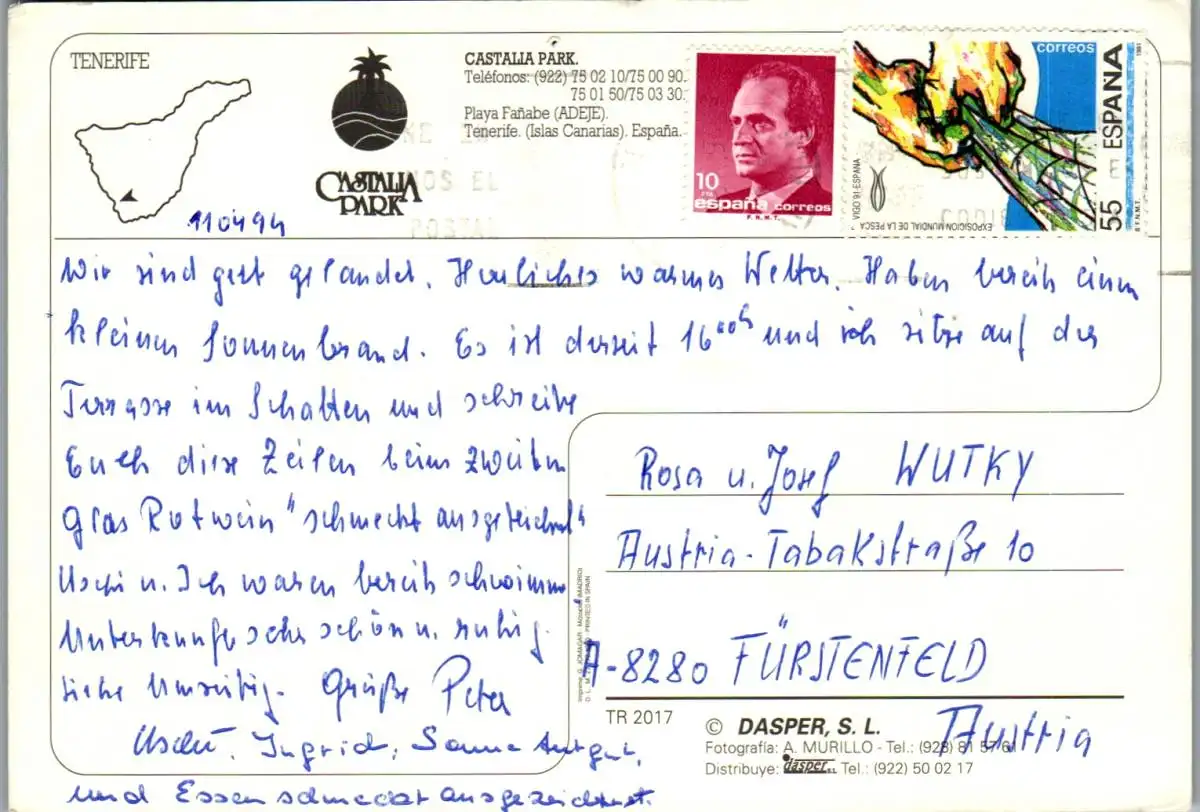 TENERIFE
CASTALIA PARK
CASTALIA PARK.
Teléfonos: (922) 75 02 10/75 00 90.
75 01 50/75 03 30.
Playa Fañabe (ADEJE).
Tenerife. (Islas Canarias). España.
10 PTA
españa correos
F.N.M.T.
correos
1991
55 ESPAÑA
F.N.M.T.
VIGO 91-ESPAÑA
EXPOSICION MUNDIAL DE LA PESCA
110494
Wir sind gut gelandet. Herrliches warmes Wetter. Haben bereits einen
kleinen Sonnenbrand. Es ist derzeit 16 00h und ich sitze auf der
Terrasse im Schatten und schreibe
Euch diese Zeilen beim zweiten
Glas Rotwein "schmeckt ausgezeichnet"
Uschi u. Ich waren bereits schwimmen
Unterkunft sehr schön u. ruhig.
siehe Umseitig. Grüße Peter
Uschi. Ingrid, Sonne tut gut,
und Essen schmeckt ausgezeichnet.
Rosa u. Josef WUTKY
Austria-Tabakstraße 10
A-8280 FÜRSTENFELD
Austria
TR 2017
© DASPER, S. L.
Fotografía: A. MURILLO - Tel.: (928) 81 57 61
Distribuye: dasper S.L. Tel.: (922) 50 02 17
PRINTED IN SPAIN